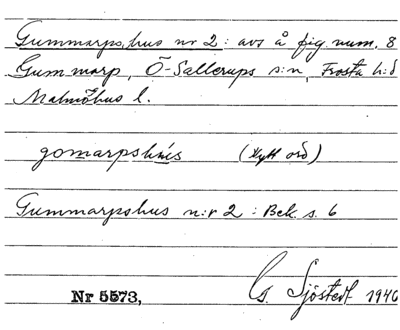 Gummarpshus nr 2: avs å fig num. 8
Gummarp, Ö-Sallerups s:n, Frosta h:d
Malmöhus l.
gomarpshús (nytt ord)
Gummarpshus n:r 2 : Bek s. 6
Nr 5573, G. Sjöstedt 1940